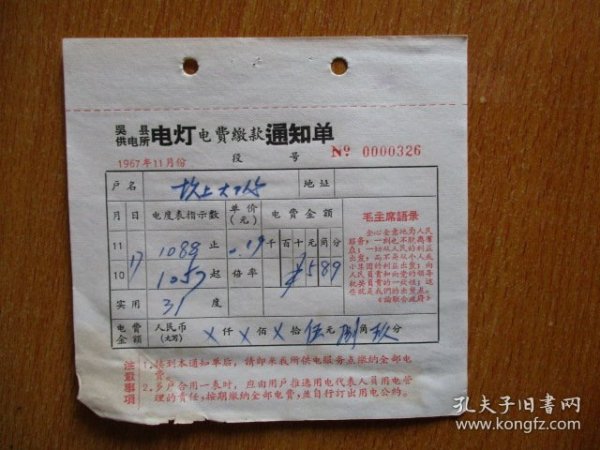 吴县
供电所 电灯 电費繳款 通知单
1967年11月份 段 号 Nº 0000326
户名 坎上大6纷 地址
月 日 电度表指示数 单价(元) 电费金额
11 17 1088 止 0.19 千百十元角分
10 1057 起 倍率 ¥589
实用 31 度
毛主席語录
全心全意地为人民
服务,一刻也不脱离羣
众;一切从人民的利益
出发,而不是从个人或
小集团的利益出发;向
人民負責和向党的領导
机关負責的一致性;这
些就是我們的出发点。
《論联合政府》
电费金额 人民币(大写) ×仟×佰×拾伍元捌角玖分
注意事項
1.接到本通知单后,請即来我所供电服务点繳納全部电
费。
2.多户合用一表时,应由用户推选用电代表人員用电管
理的責任,按期繳納全部电费,并自行訂出用电公約。
孔夫子旧書网
www.kongfz.com